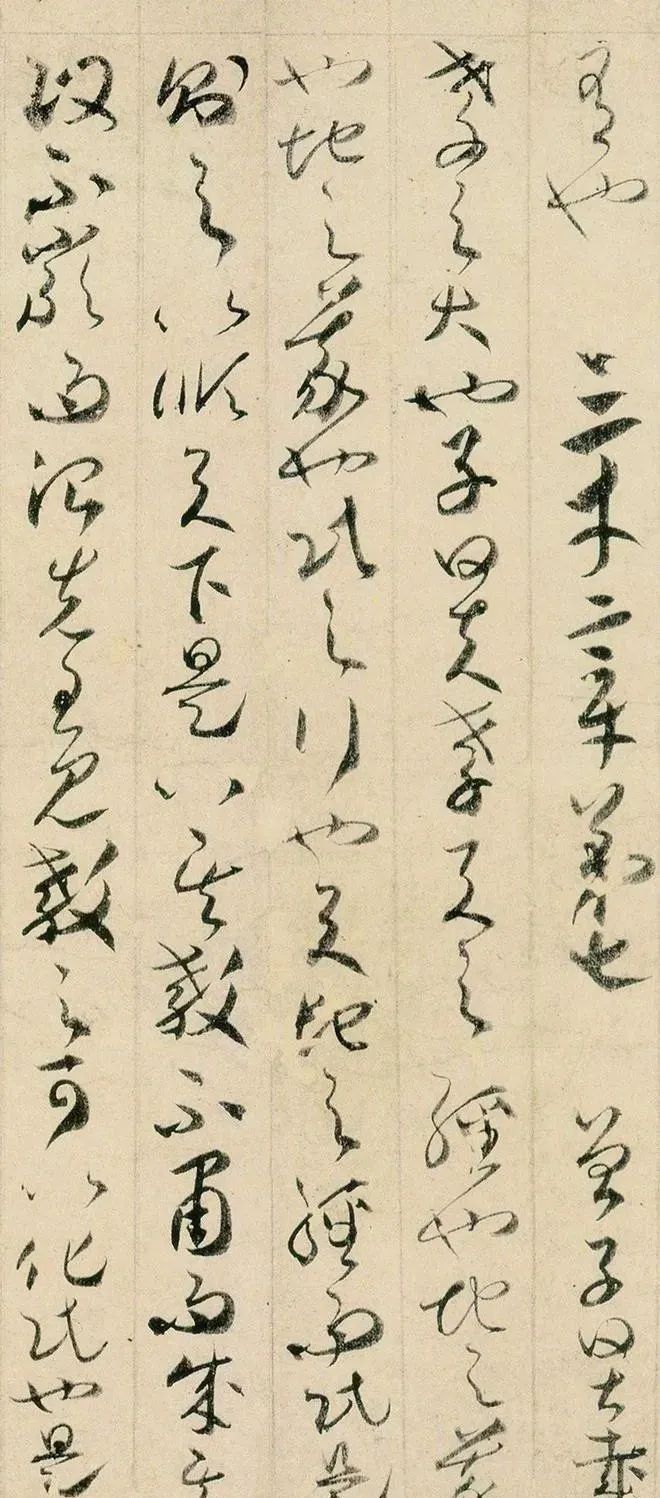 有也 三才章第七 曾子曰甚哉
孝之大也子曰夫孝天之經也地之義
也地之義也民之行也天地之經而民是
則之以順天下是以其教不肅而成其
政不嚴而治先王見教之可以化民也是